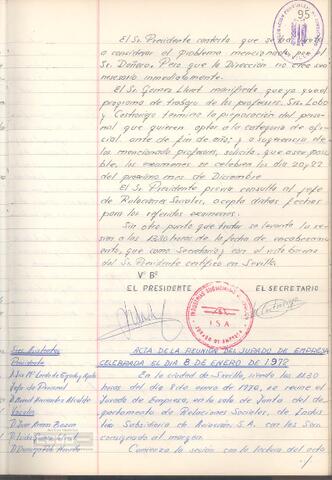 95
El Sr. Presidente contesta que se
a considerar el problema mencionado por el
Sr. Doñoro. Pero que la Dirección no cree sea
necesario inmediatamente.
El Sr. Gomez Lloret manifiesta que ya que el
programa de trabajo de los profesores Srs. Lobo
y termina la preparación del personal
que quieren optar a la categoria de oficial
ante de fin de año, y a sugerencia de
los mencionado profesores, solicita, que a ser posible,
los examenes se celebren los dia 20 y 22
del proximo mes de Diciembre
El Sr. Presidente previa consulta al jefe
de Relaciones Sociales, acepta dichas fechas
para los referidos examenes.
Sin otro punto que tratar se levanta la sesion
a las horas de la fecha de
que, como Secretario, y con el visto bueno
del Sr. Presidente certifico en Sevilla.
Vº Bº
EL PRESIDENTE
EL SECRETARIO
ISA
JURADO DE EMPRESA
Sres. Asistentes
Presidente
Jefe de Personal
Vocales
D. Juan Bazan
ACTA DE LA REUNION DEL JURADO DE EMPRESA
CELEBRADA EL DIA 8 DE ENERO DE 1972
En la ciudad de Sevilla, siendo las 11,30
horas del dia 8 de enero de 1970, se reune el
Jurado de Empresa, en la sala de Junta del departamento
de Relaciones Sociales, de Industria
Subsidiaria de Aviación, S.A. con los Srs.
consignado al margen.
Comienza la sesión con la lectura del acta